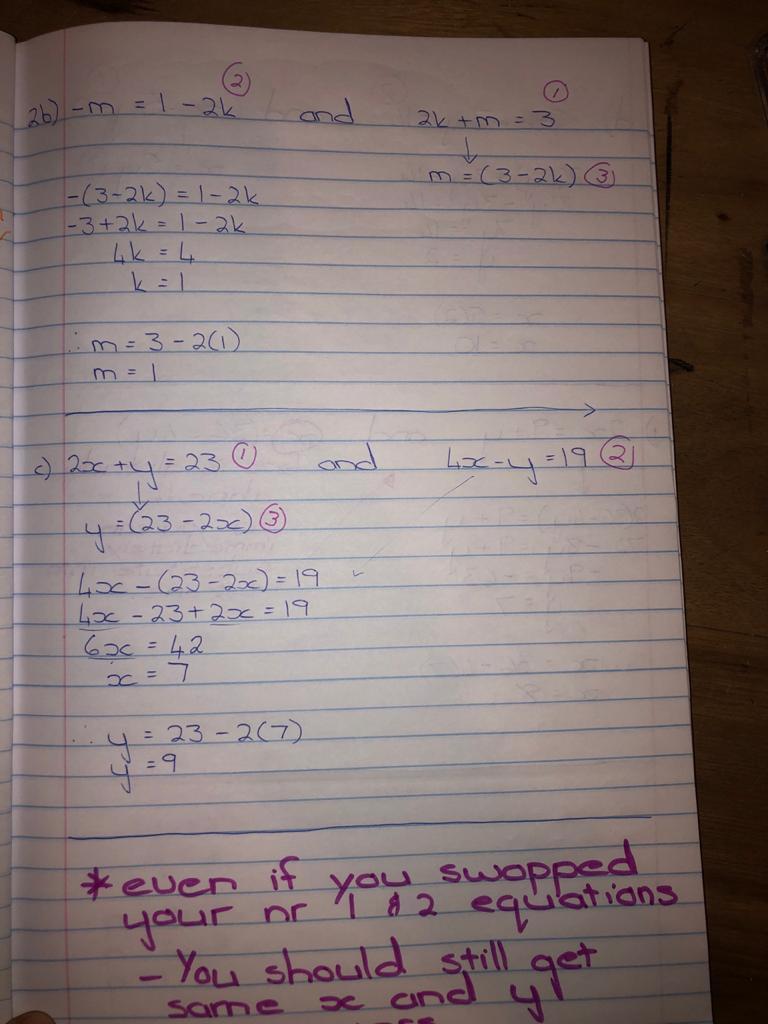 2b) -m = 1 - 2k ② and 2k + m = 3 ①
↓
m = (3 - 2k) ③
-(3 - 2k) = 1 - 2k
-3 + 2k = 1 - 2k
4k = 4
k = 1
∴ m = 3 - 2(1)
m = 1
c) 2x + y = 23 ① and 4x - y = 19 ②
↓
y = (23 - 2x) ③
4x - (23 - 2x) = 19
4x - 23 + 2x = 19
6x = 42
x = 7
∴ y = 23 - 2(7)
y = 9
* even if you swopped
your nr 1 & 2 equations
- You should still get
same x and y